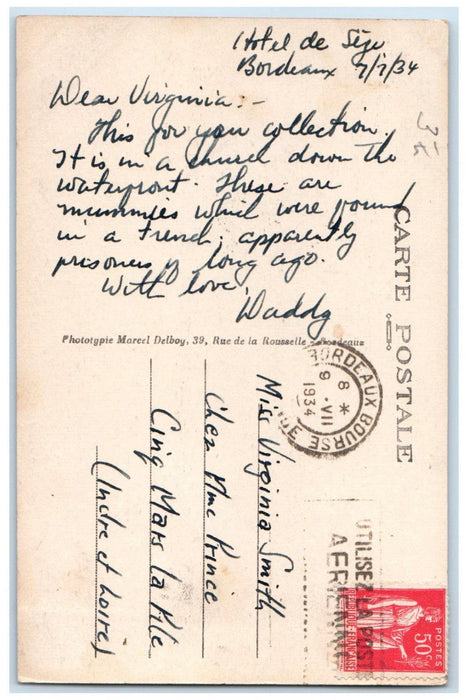 Hotel de Sèze
Bordeaux 7/7/34
Dear Virginia:-
This for your collection.
It is in a church down the
waterfront. These are
mummies which were found
in a trench, apparently
prisoners of long ago.
With love,
Daddy
CARTE POSTALE
Phototypie Marcel Delboy, 39, Rue de la Rousselle Bordeaux
BORDEAUX BOURSE
8 *
9 · VII
1934
Miss Virginia Smith
Chez Mme Prince
Cinq Mars La Pile
(Indre et Loire)
UTILISEZ LA POSTE
AERIENNE
POSTES
50c
REPUBLIQUE FRANÇAISE